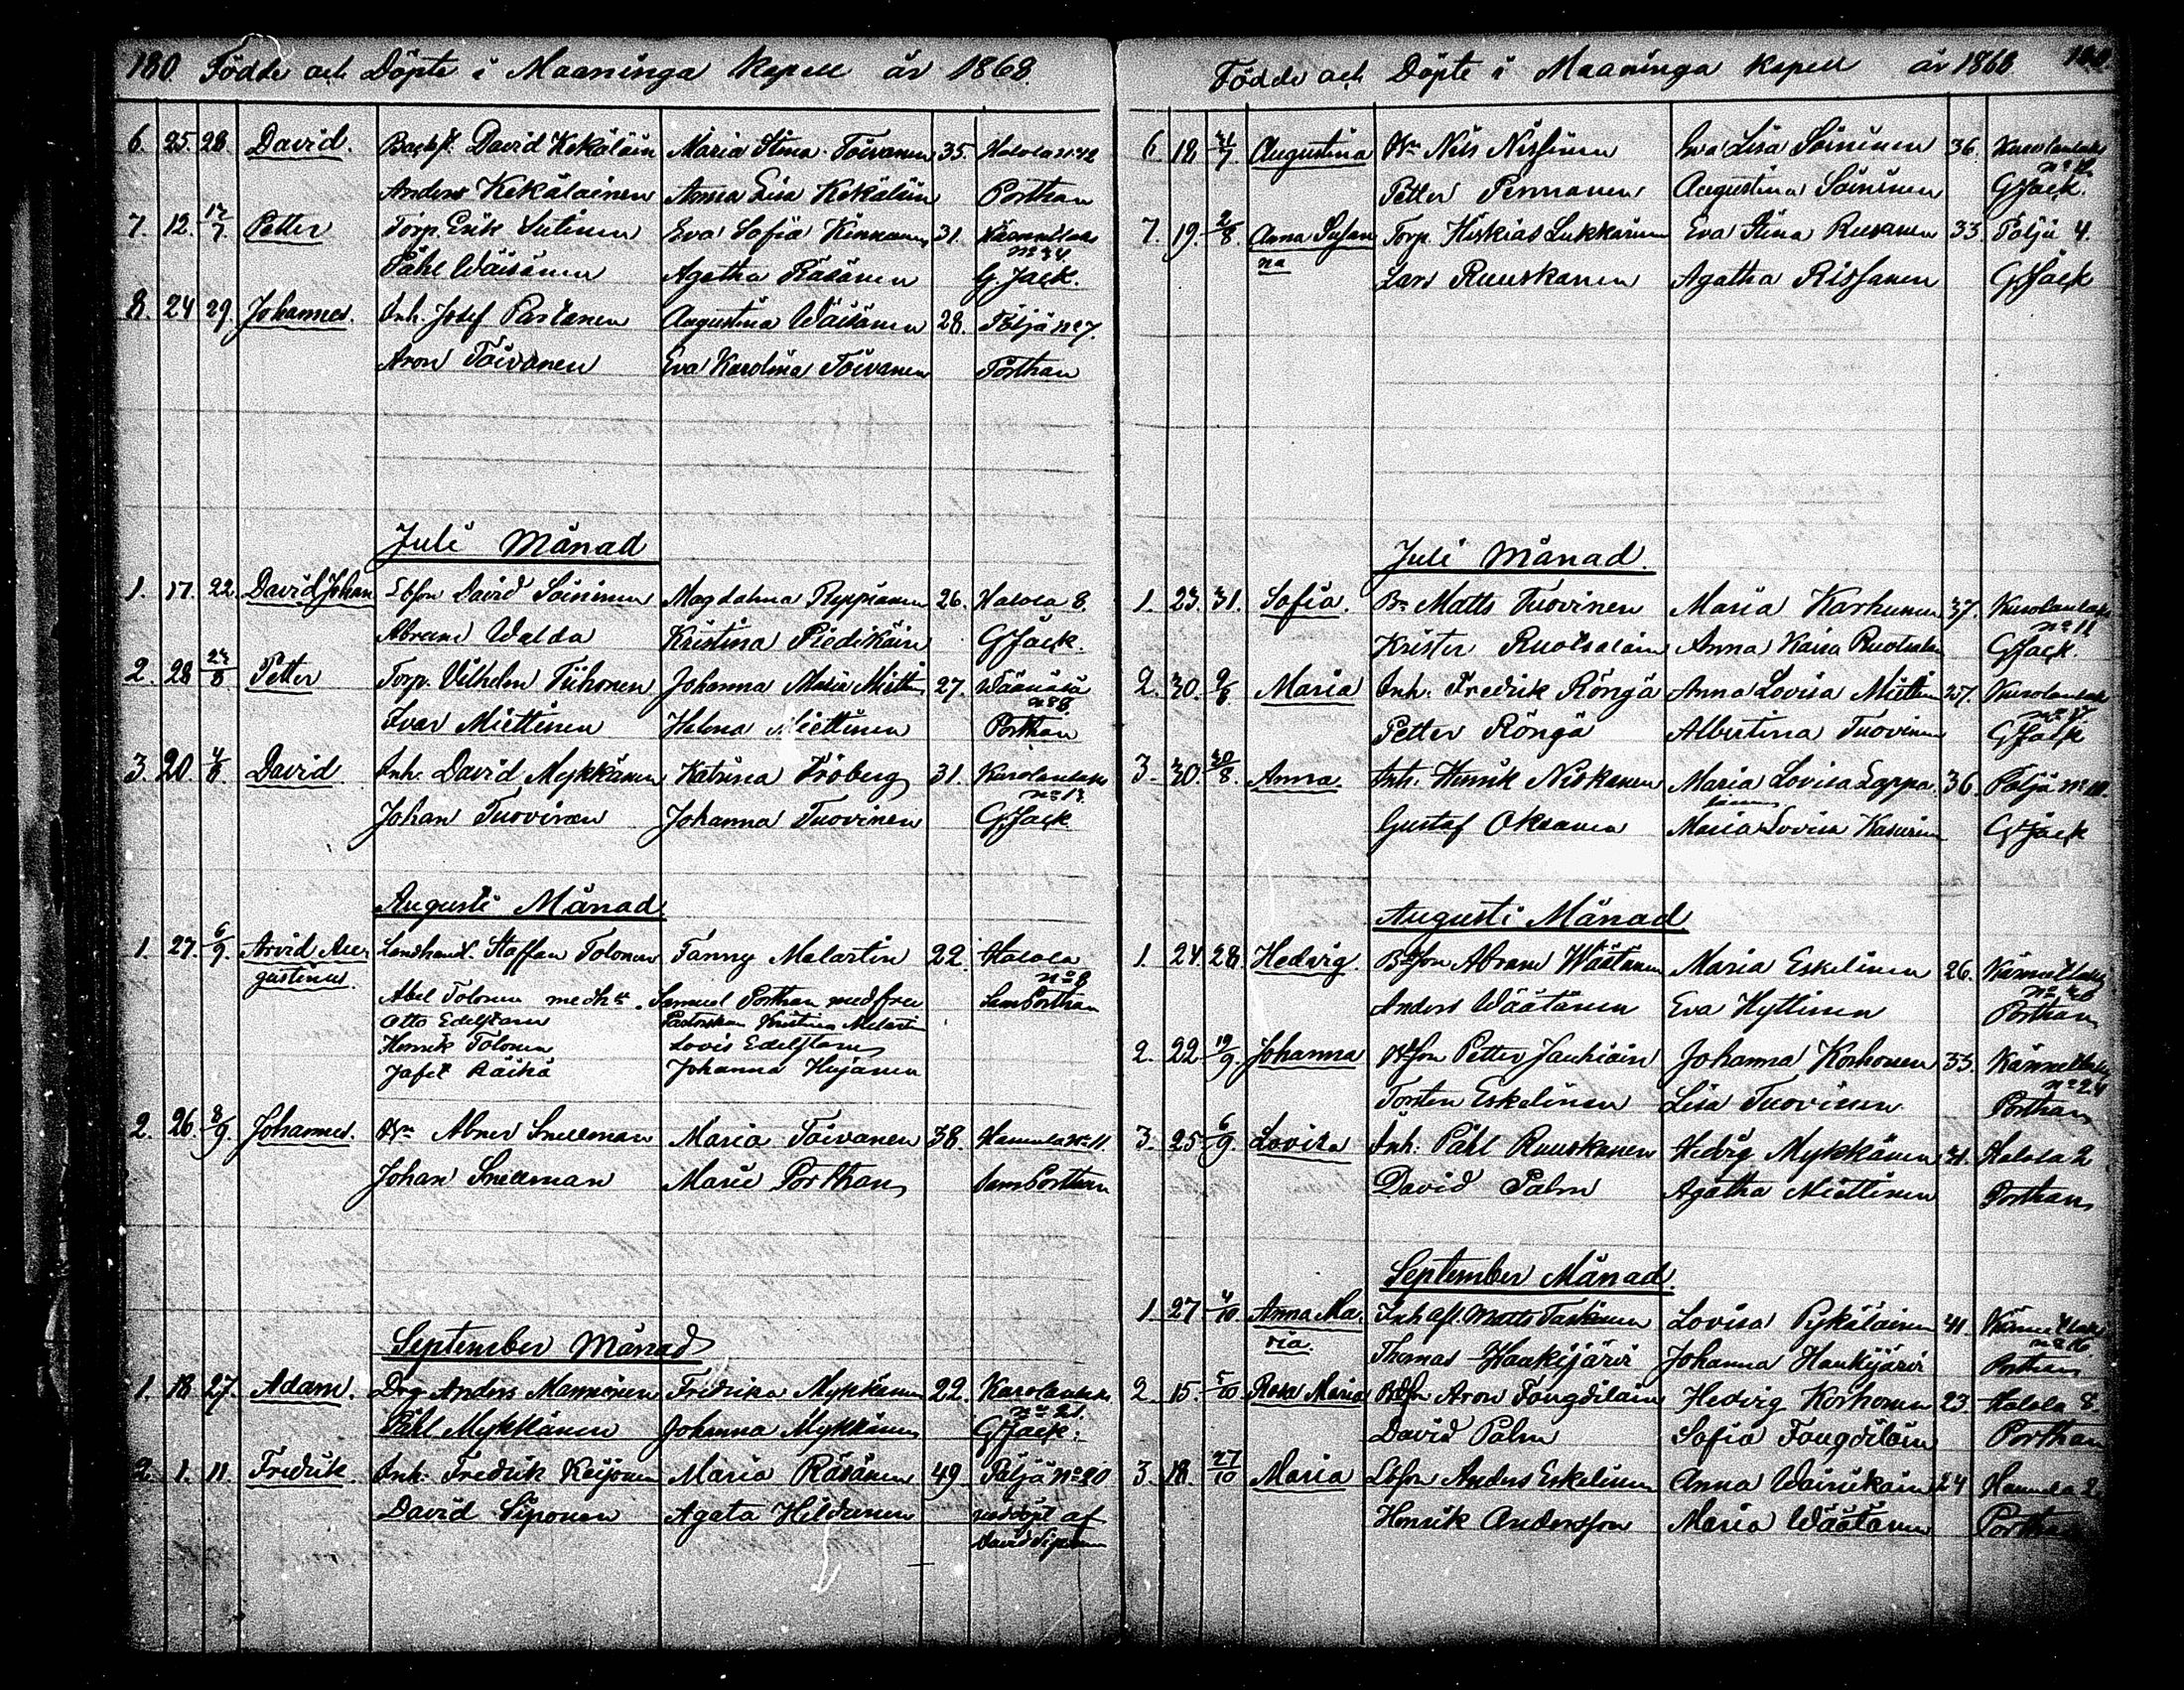 180. Födde och Döpte i Maaninga Kapell år 1868.
6. 25. 28. David. Backst. David Kekäläin Maria Stina Toivanen 35. Halola no 12
Anders Kekäläinen Anna Lisa Kekäläin Porthan
7. 12. 12/7. Petter Torp. Erik Sutinen Eva Sofia Kinnanen 31. Käännetlaks
no 34.
Påhl Wäisänen Agatha Räsänen G. Jack.
8. 24 29. Johannes. Inh. Josef Partanen Augustina Wäisänen 28. Pöljä no 7.
Aron Toivanen Eva Karolina Toivanen Porthan
Juli Månad
1. 17. 22. David Johan Lbson David Soininen Magdalena 26. Halola 8.
Abram Walda Kristina Piedikäin GJack.
2. 28 Petter Torp. Vilhelm Tiihonen Johanna Maria Miettin 27. Wäänälä
no 8.
Ivar Miettinen Helena Miettinen Porthan
3. 20. 4/8. David Inh. David Mykkänen Katrina Fröberg 31. Kurolanlaks
no 13.
Johan Tuovinen Johanna Tuovinen GJack.
Augusti Månad
1. 27. 6/9. Arvid Au- Landhandl. Staffan Tolonen Fanny Melartin 22. Halola
gustinus. no 8
Abel Tolonen med Samuel Porthan med fru SamPorthan
Otto Edelstam Pastorskan Kristina Melartin
Henrik Tolonen Lovis Edelstam
Jafet Räihä Johanna Hujanen
2. 26. 8/9. Johannes. Bn Abner Snellman Maria Toivanen 38. Hamula no 11.
Johan Snellman Marie Porthan SamPorthan
September Månad
1. 18. 27. Adam. Drg Anders Manninen Fredrika Mykkänen 22. Kurolanlaks
no 21.
Påhl Mykkänen Johanna Mykkänen GJack.
2. 1. 11. Fredrik. Inh. Fredrik Keijonen Maria Räsänen 49. Pöljä no 20
David Siponen Agata Hildunen nöddöpt af
David Siponen
Födde och Döpte i Maaninga Kapell år 1868
6. 18. Augustina Bn Nils Nissinen Eva Lisa Soininen 36. Kurolanlaks
Petter Pennanen Augustina Soininen GJack.
7. 19. 2/8. Anna Susan Torp. Hiskias Lukkarinen Eva Stina 33. Pöljä 4.
na Lars Ruuskanen Agatha Rissanen GJack
Juli Månad.
1. 23. 31. Sofia. Bn Matts Tuovinen Maria Karhunen 37. Kurolanlaks
no 11.
Krister Ruotsalain Anna Kaisa Ruotsalain GJack.
2. 30. 9/8. Maria Inh. Fredrik Röngä Anna Lovisa Miettin 27. Kurolanlaks
Petter Röngä Albertina Tuovinen GJack
3. 30. 30/8. Anna. Inh. Henrik Niskanen Maria Lovisa Lappa- 36. Pöljä no 10.
lainen
Gustaf Oksanen Maria Lovisa Kasurin GJack
Augusti Månad
1. 24. 28. Hedvig. Bson Abram Wäätänen Maria Eskelinen 26. Käännetlaks
Anders Wäätänen Eva Hyttinen Porthan
2. 22. 19/9. Johanna Bson Petter Jauhiain Johanna Korhonen 33. Käännetlaks
no 24
Torsten Eskelinen Lisa Tuovinen Porthan
3. 25. 6/9. Lovisa Inh. Påhl Ruuskanen Hedvig Mykkänen 31. Halola 2
David Palm Agatha Miettinen Porthan
September Månad.
1. 27. 4/10. Anna Ma- Inh afl. Matts Taskinen Lovisa Pykäläinen 41. Käännetlaks
ria. no 16
Thomas Haukijärvi Johanna Haukijärvi Porthan
2. 15. 5/10 Rosa Maria Bdson Aron Fougdiläin Hedvig Korhonen 23. Halola 8.
David Palm Sofia Fougdiläin Porthan
3. 18. 27/10 Maria Lbson Anders Eskelinen Anna Wainikain 24 Hamula 2.
Henrik Andersson Maria Wäätänen Porthan